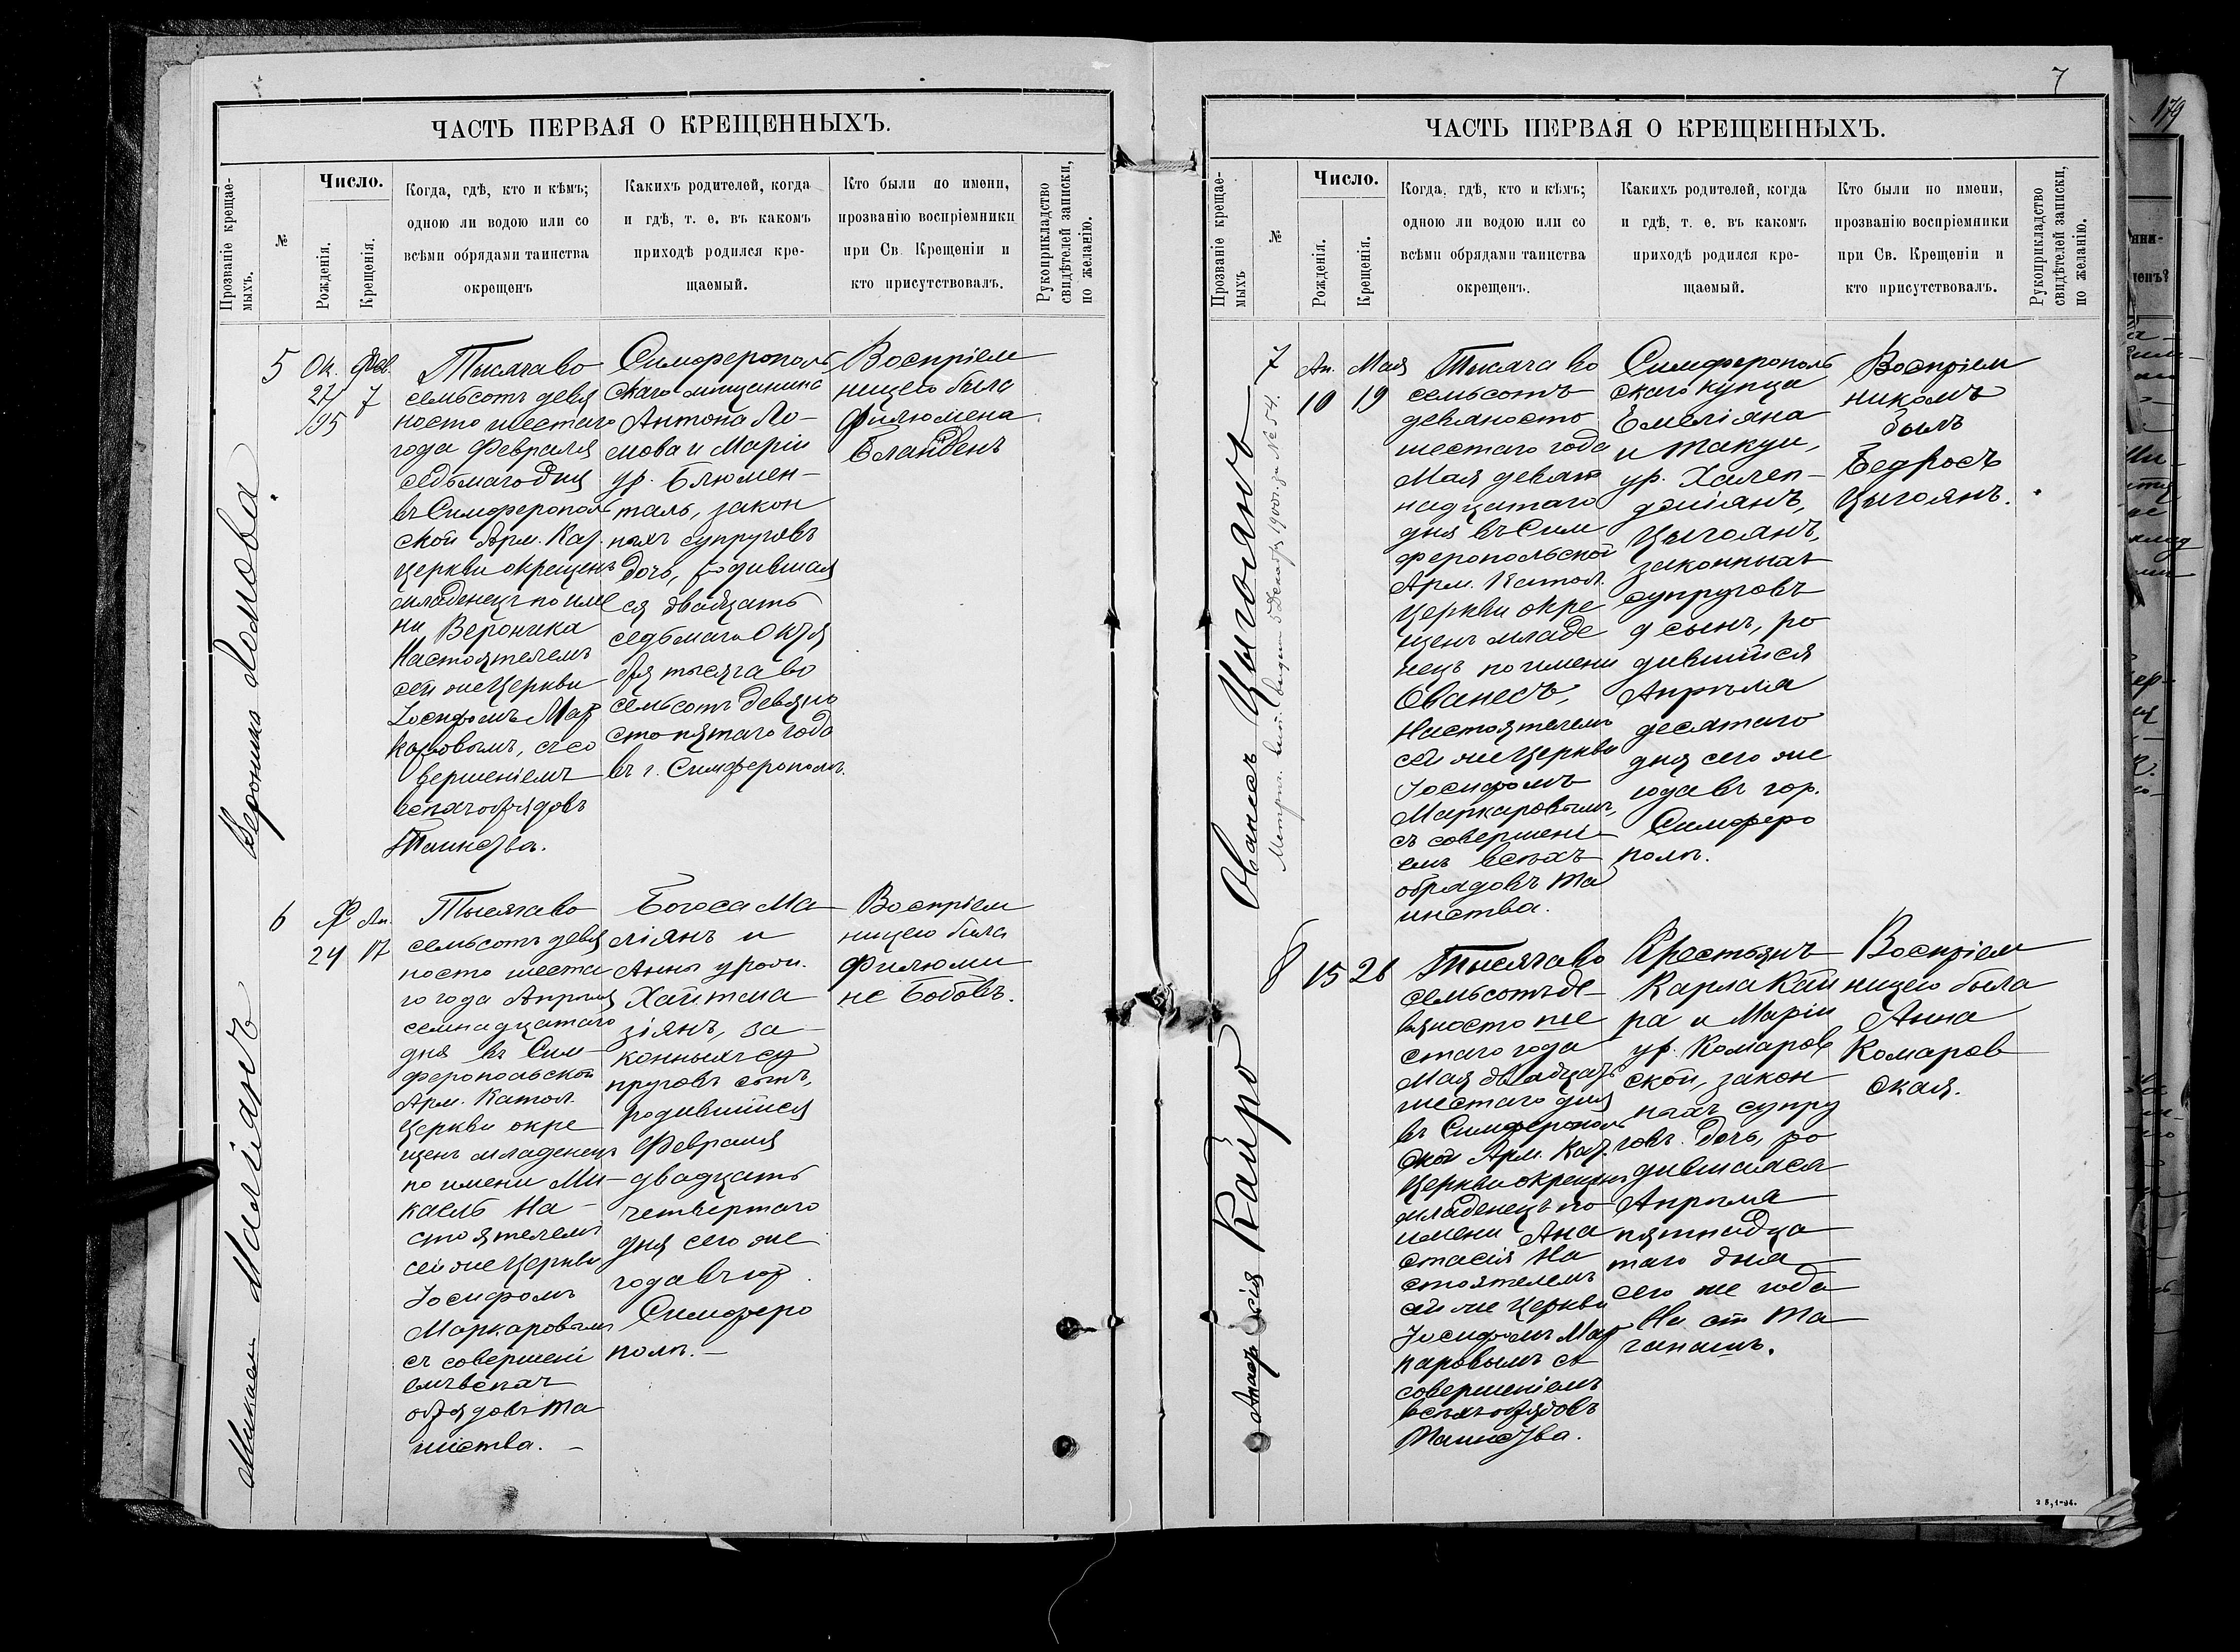 ЧАСТЬ ПЕРВАЯ О КРЕЩЕННЫХЪ.
Прозваніе крещае-
мыхъ.
№
Число.
Рожденія.
Крещенія.
Когда, гдѣ, кто и кѣмъ;
одною ли водою или со
всѣми обрядами таинства
окрещенъ
Какихъ родителей, когда
и гдѣ, т. е. въ какомъ
приходѣ родился кре-
щаемый.
Кто были по имени,
прозванію воспріемники
при Св. Крещеніи и
кто присутствовалъ.
Рукоприкладство
свидѣтелей записки,
по желанію.
Вероника Ломова
5
Ок.
27
/95
Фев.
7
Тысяча во
семьсотъ девя
носто шестаго
года Февраля
седьмаго дня
въ Симферополь
ской Арм. Кат.
церкви окрещенъ
младенецъ по име
ни Вероника
Настоятелемъ
сей же Церкви
Іосифомъ Мар
каровымъ, съ со
вершеніемъ
всѣхъ обрядовъ
Таинства.
Симферополь
скаго мѣщанина
Антона Ло-
мова и Маріи
ур. Блюмен-
таль, закон
ныхъ супруговъ
дочь, родившая
ся двадцать
седьмаго Октя
бря тысяча во
семьсотъ девяно
сто пятаго года
въ г. Симферополѣ.
Воспріем
ницею была
Филюмена
Бланденъ
Микаель Маліянъ
6
Ф
24
Ап.
17
Тысяча во
семьсотъ девя
носто шеста
го года Апрѣля
семнадцатаго
дня въ Сим-
феропольской
Арм. Катол.
Церкви окре
щенъ младенецъ
по имени Ми-
каель На-
стоятелемъ
сей же Церкви
Іосифомъ
Маркаровымъ
съ совершені
емъ всѣхъ
обрядовъ Та
инства. -
Богоса Ма
ліянъ и
Анны урож.
Хайтма
зіянъ, за-
конныхъ су
пруговъ сынъ,
родившійся
Февраля
двадцать
четвертаго
дня сего же
года въ гор.
Симферо
полѣ. -
Воспріем
ницею была
Филюми
не Бобовъ.
7
ЧАСТЬ ПЕРВАЯ О КРЕЩЕННЫХЪ.
Прозваніе крещае-
мыхъ
№
Число.
Рожденія.
Крещенія.
Когда, гдѣ, кто и кѣмъ;
одною ли водою или со
всѣми обрядами таинства
окрещенъ.
Какихъ родителей, когда
и гдѣ, т. е. въ какомъ
приходѣ родился кре-
щаемый.
Кто были по имени,
прозванію воспріемники
при Св. Крещеніи и
кто присутствовалъ.
Рукоприкладство
свидѣтелей записки,
по желанію.
Ованесъ Цыгоянъ
Метрич. вып. выдан 5 Декабр. 1900 г. за № 54.
7
Ап.
10
Мая
19
Тысяча во
семьсотъ
девяносто
шестаго года
Мая девят
надцатаго
дня въ Сим
феропольской
Арм. Катол.
Церкви окре
щенъ младе
нецъ по имени
Ованесъ,
Настоятелемъ
сей же Церкви
Іосифомъ
Маркаровымъ,
съ совершені-
емъ всѣхъ
обрядовъ Та
инства.
Симферополь
скаго купца
Емеліяна
и Такуи,
ур. Халеп-
джіянъ,
Цыгоянъ,
законныхъ
супруговъ
сынъ, ро
дившійся
Апрѣля
десятаго
дня сего же
года въ гор.
Симферо
полѣ.
Воспріем
никомъ
былъ
Бедросъ
Цыгоянъ.
Анастасія Кайро
8
15
26
Тысяча во
семьсотъ де-
вяносто ше
стаго года
Мая двадцать
шестаго дня
въ Симферополь
ской Арм. Кат.
Церкви окрещенъ
младенецъ по
имени Ана
стасія На
стоятелемъ
сей же Церкви
Іосифомъ Мар
каровымъ съ
совершеніемъ
всѣхъ обрядовъ
Таинства.
Крестьянъ
Карла Кай
ра и Маріи
ур. Комаров
ской, закон
ныхъ супру
говъ дочь, ро
дившаяся
Апрѣля
пятнадца
таго дня
сего же года
На ст. Та
ганашъ.
Воспріем
ницею была
Анна
Комаров
ская.
2 8,1-94.
179